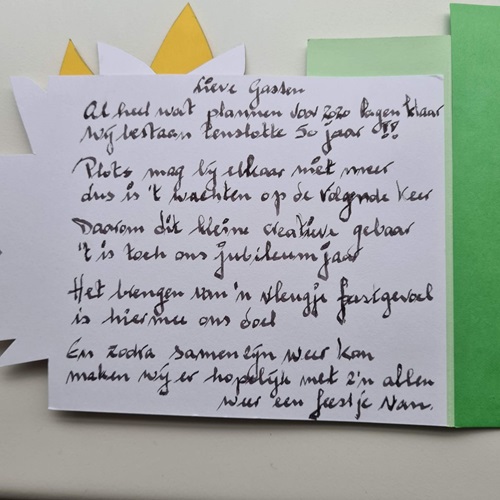 Lieve Gasten
Al heel wat plannen voor 2020 lagen klaar
wij bestaan tenslotte 50 jaar !!!
Plots mag bij elkaar niet meer
dus is 't wachten op de volgende keer
Daarom dit kleine creatieve gebaar
't is toch ons jubileumjaar
Het brengen van 'n vleugje feestgevoel
is hiermee ons doel
En zodra samenzijn weer kan
maken wij er hopelijk met z'n allen
weer een feestje van.